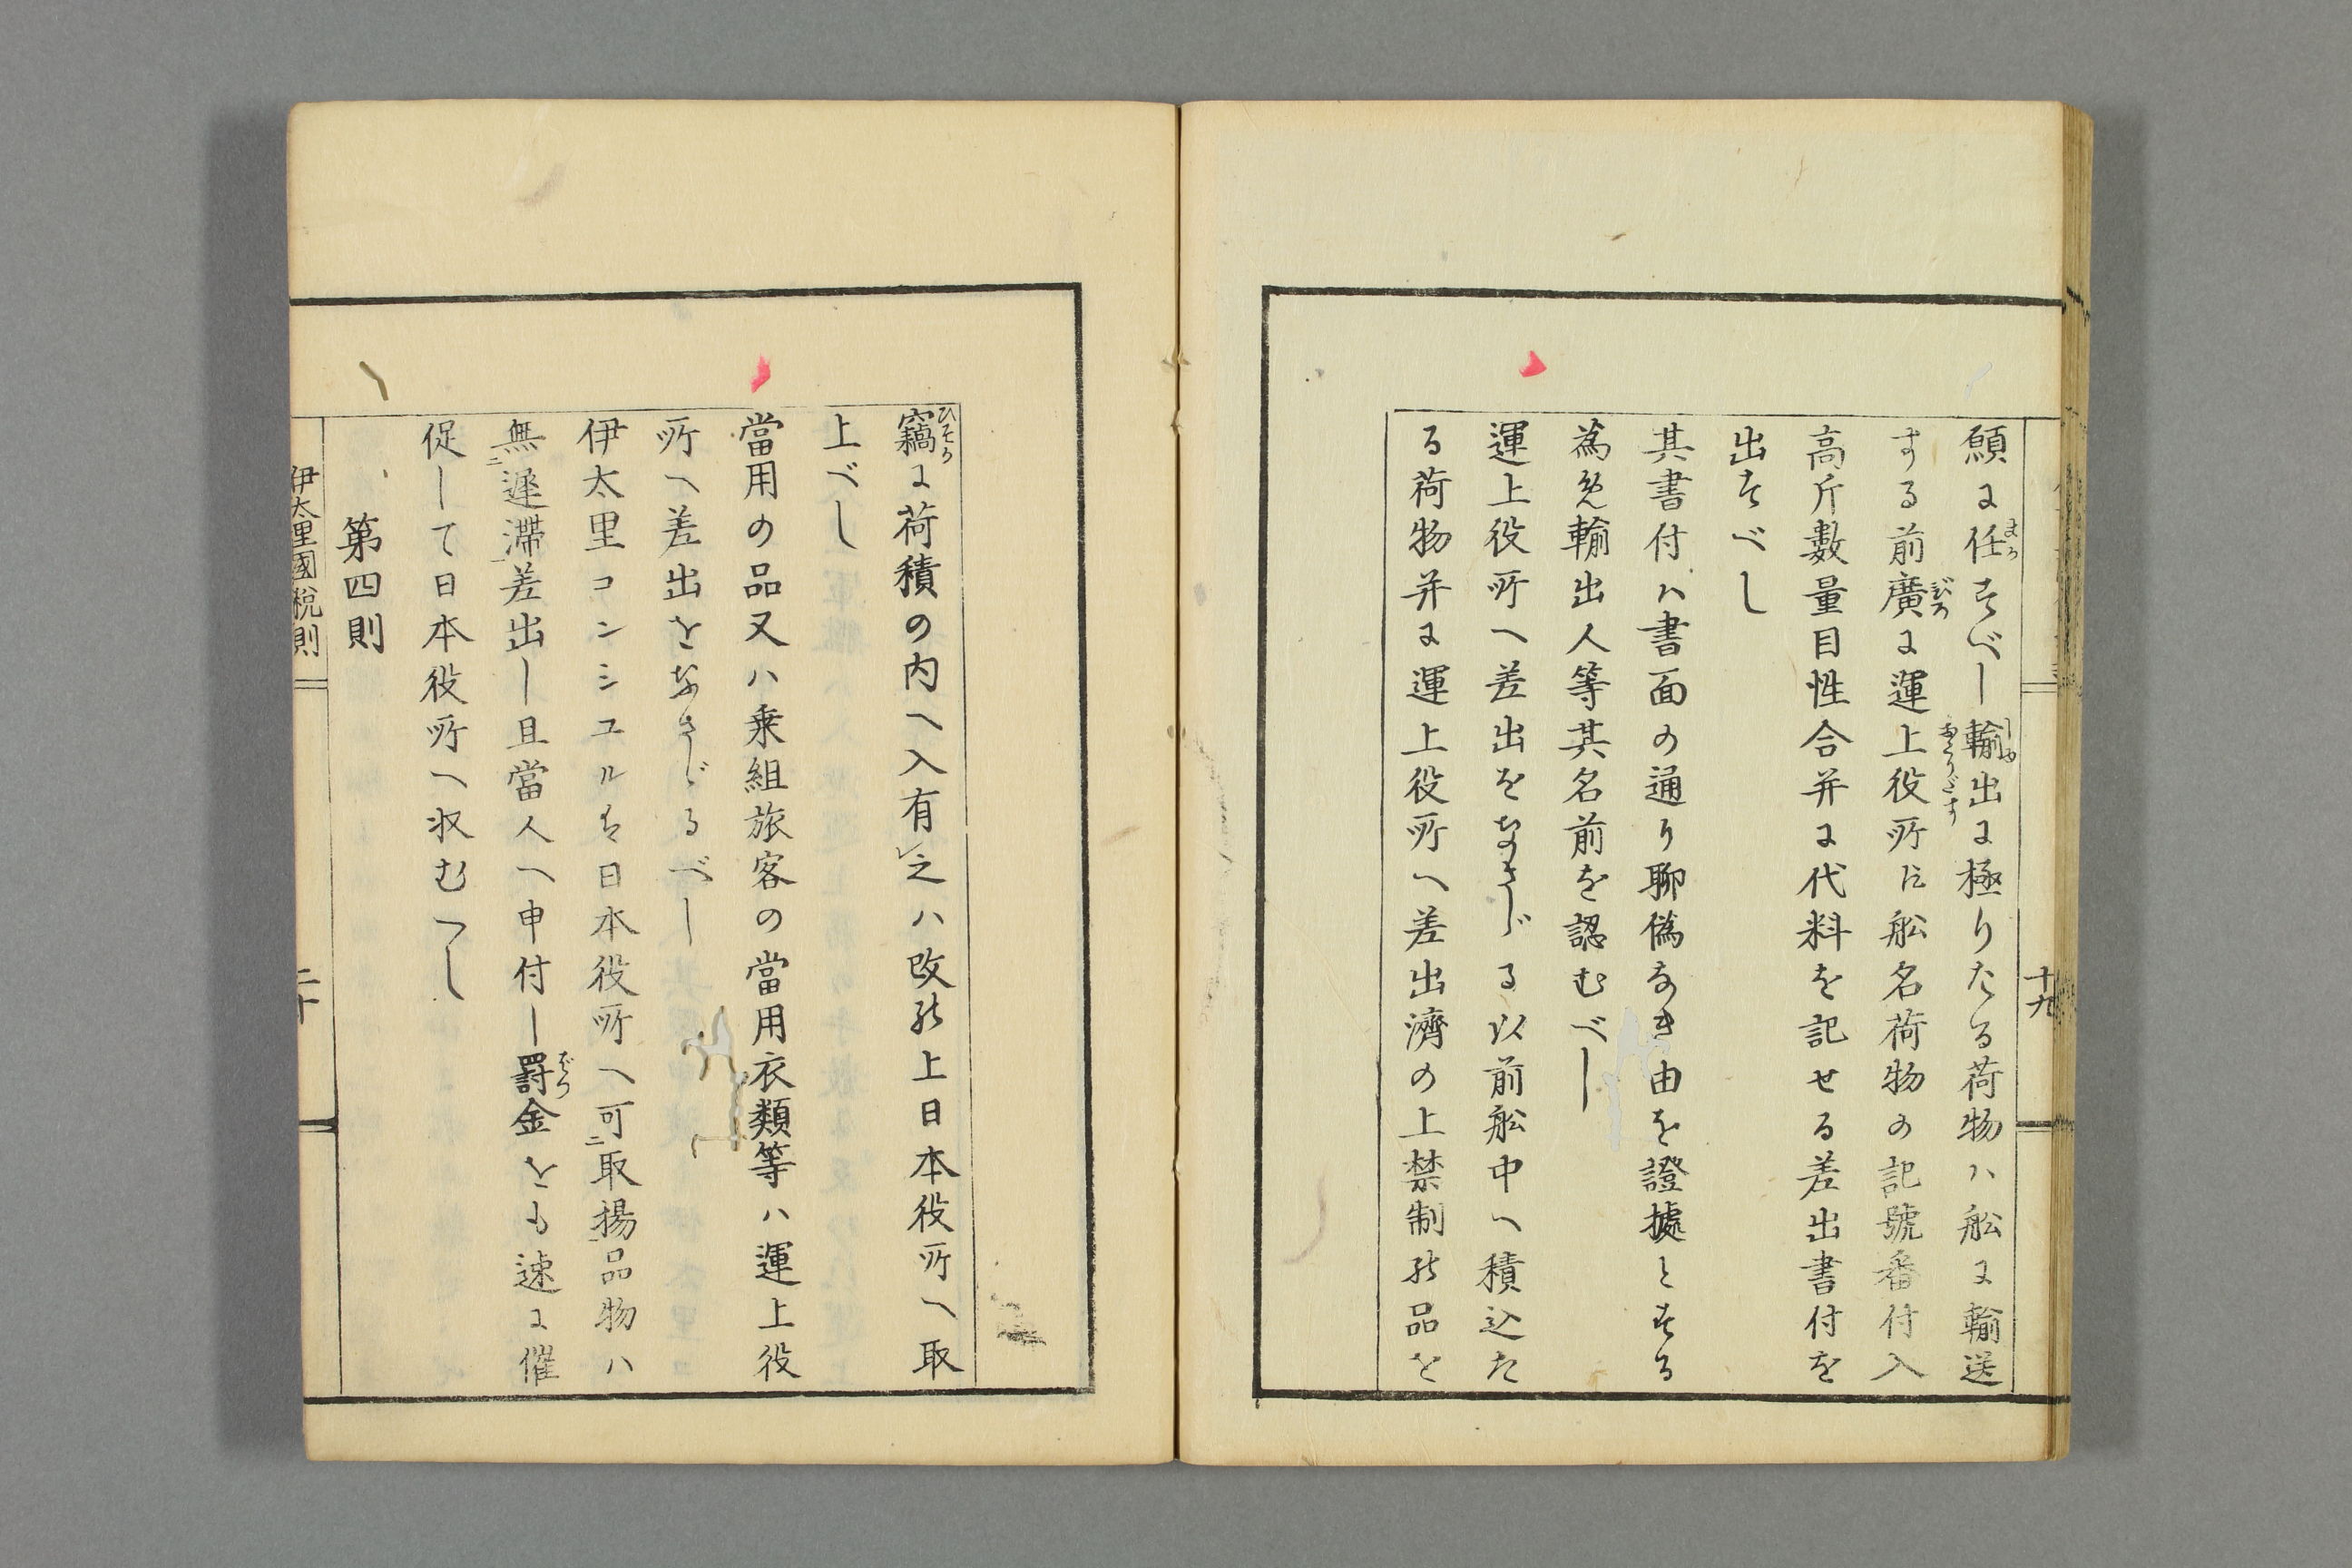 願に任すべし輸出に極りたる荷物ハ舩に輸送
する前廣に運上役所に舩名荷物の記號番付入
高斤數量目性合并に代料を記せる差出書付を
出すべし
其書付ハ書面の通り聊僞なき由を證據とする
為め輸出人等其名前を認むべし
運上役所へ差出をなさゞる以前舩中へ積込た
る荷物并に運上役所へ差出濟の上禁制の品を
十九
竊に荷積の内へ入有之ハ改の上日本役所へ取
上べし
當用の品又ハ乗組旅客の當用衣類等ハ運上役
所へ差出をなさゞるべし
伊太里コンシユルは日本役所へ可取揚品物ハ
無遲滯差出し且當人へ申付し罸金をも速に催
促して日本役所へ収むべし
第四則
伊太里國税則
二十